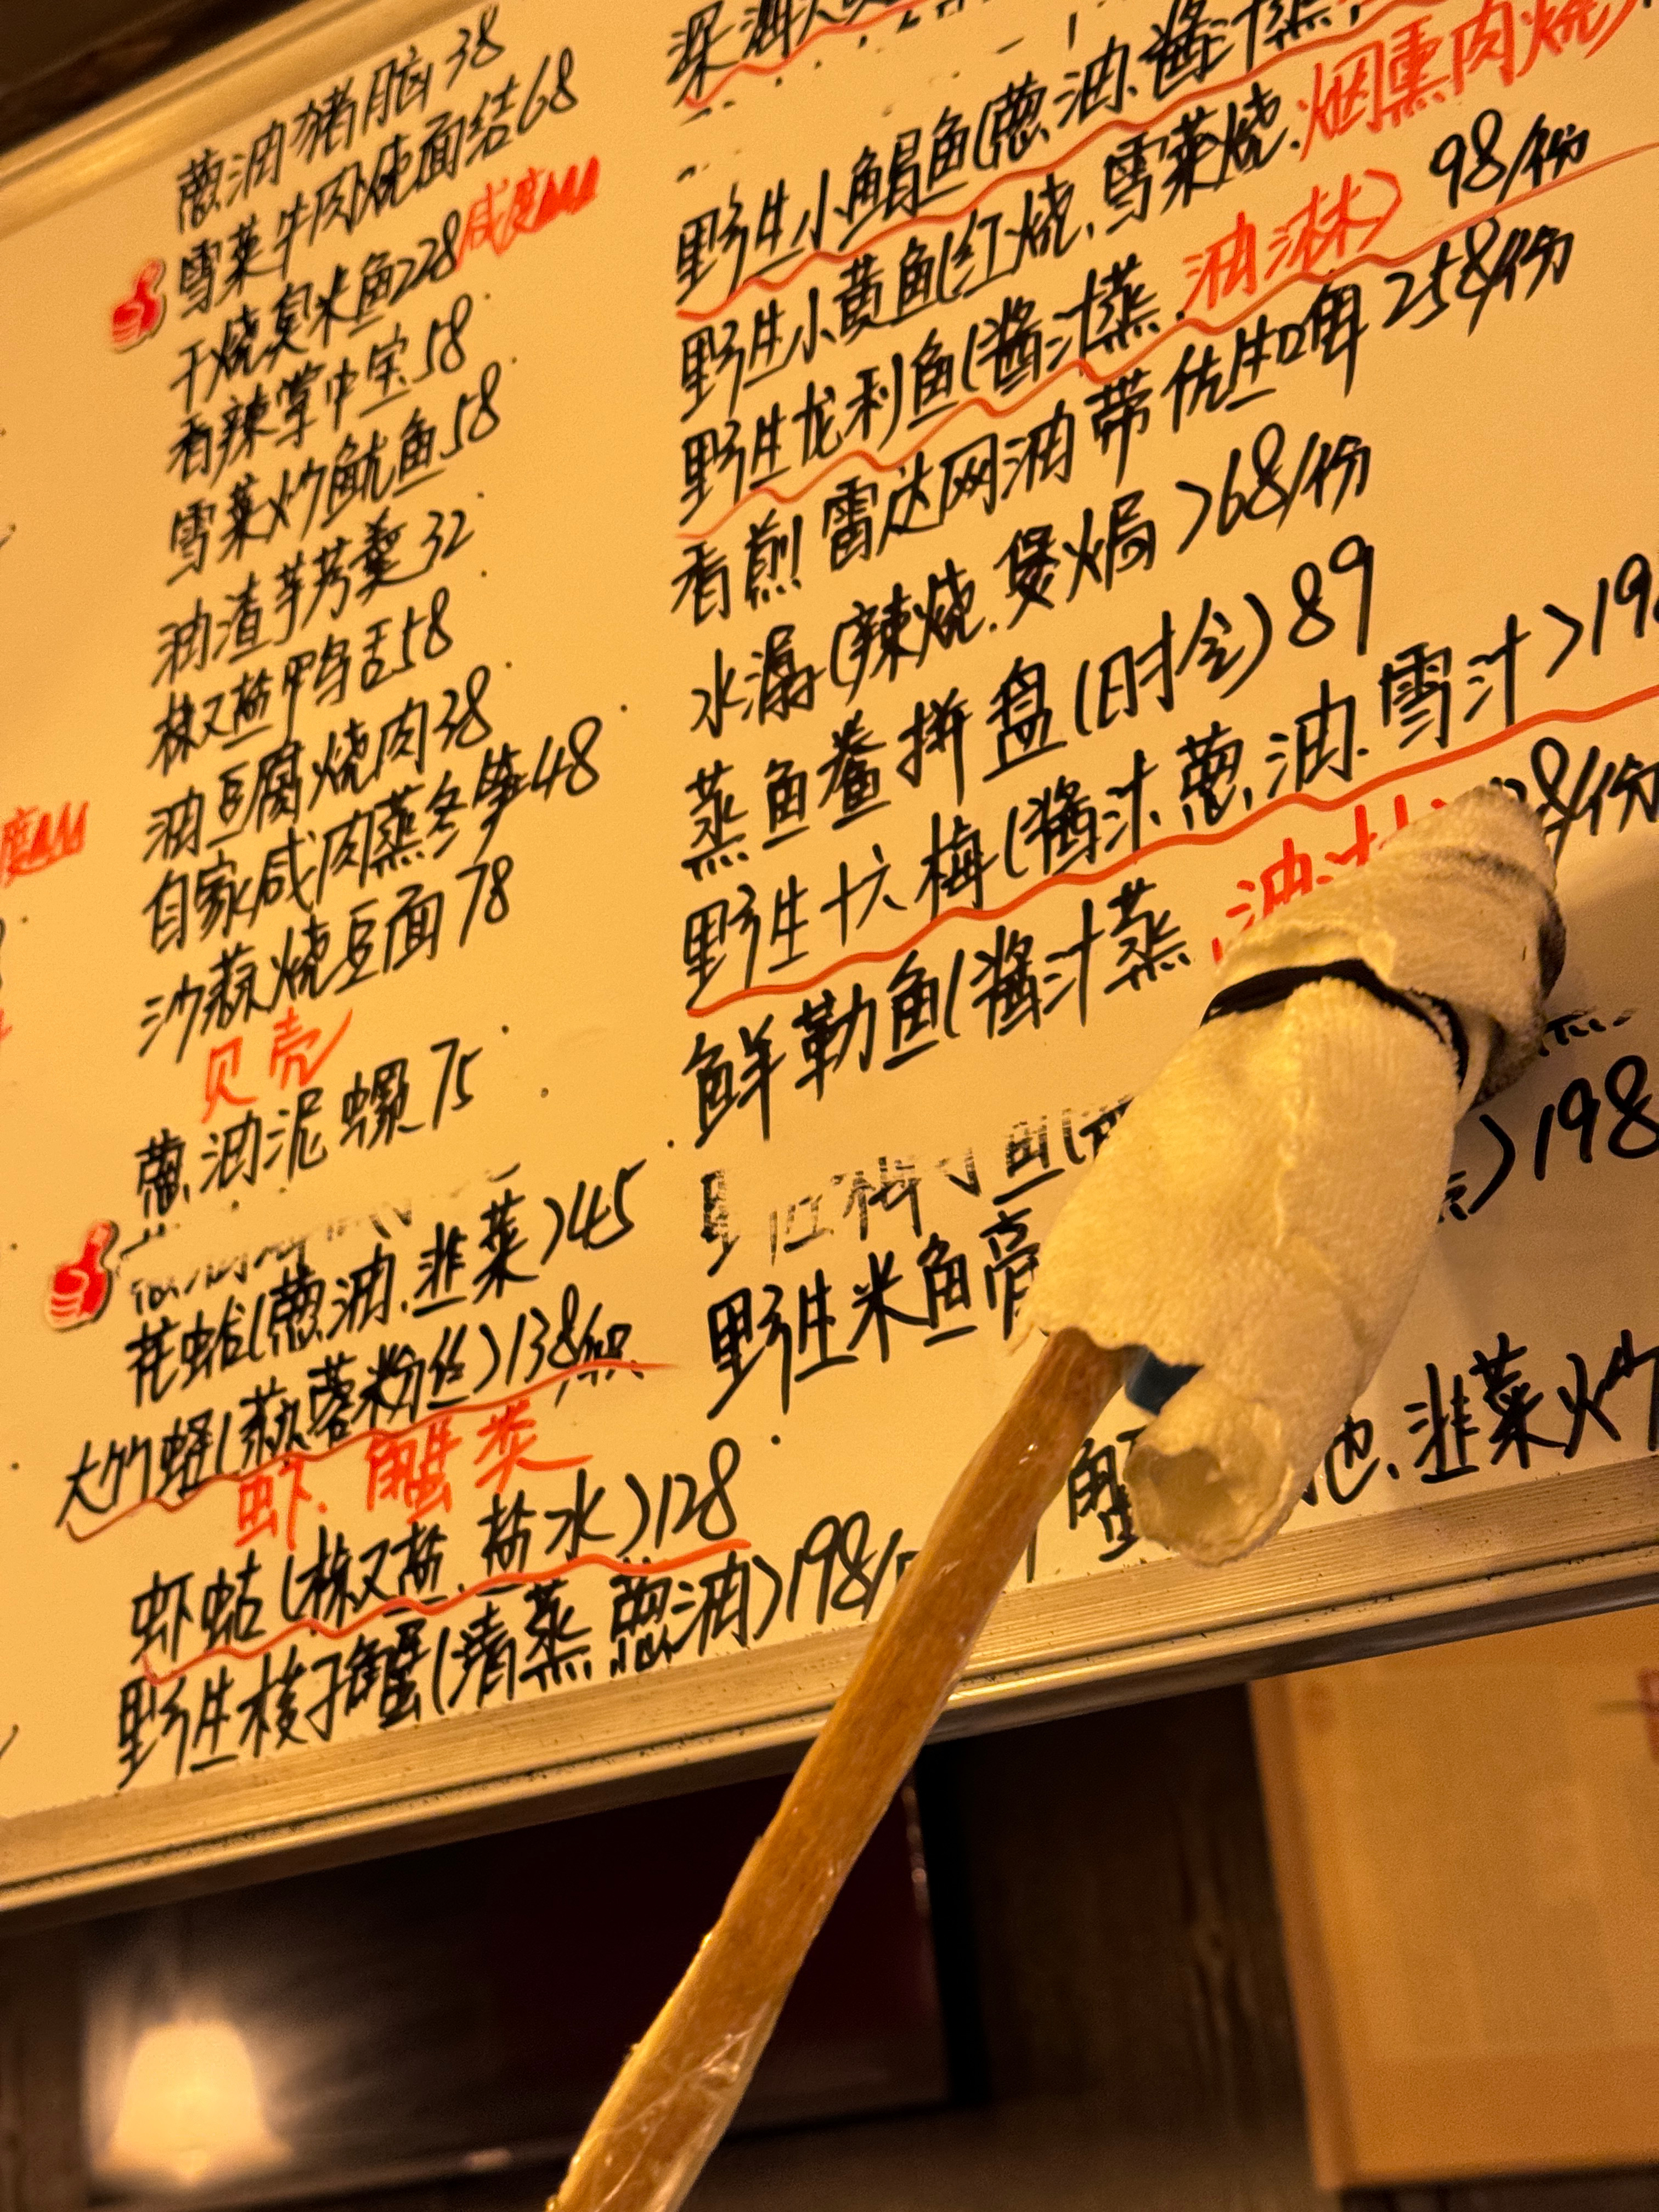 葱油猪脑38
雪菜牛肉烧面结68
干烧臭米鱼228咸度
香辣掌中宝58
雪菜炒鱿鱼58
油渣芋艿羹32
椒盐鸭舌58
油豆腐烧肉38
自家咸肉蒸冬笋48
沙蒜烧豆面78
贝壳
葱油泥螺75
花蛤(葱油.韭菜)45
大竹蛏(蒜蓉粉丝)138/
虾.蟹类
虾蛄(椒盐.盐水)128
野生梭子蟹(清蒸.葱油)198/
度
深海
野生小鲳鱼(葱油.酱汁蒸
野生小黄鱼(红烧.雪菜烧.烟熏肉烧)
野生龙利鱼(酱汁蒸.油淋)98/份
香煎雷达网油带 258/份
水潺(辣烧.煲焗)68/份
蒸鱼鲞拼盘(时令)89
野生十六梅(酱汁.葱油.雪汁)19
鲜勒鱼(酱汁蒸 油 8/份
野生米鱼膏 )198
.韭菜炒